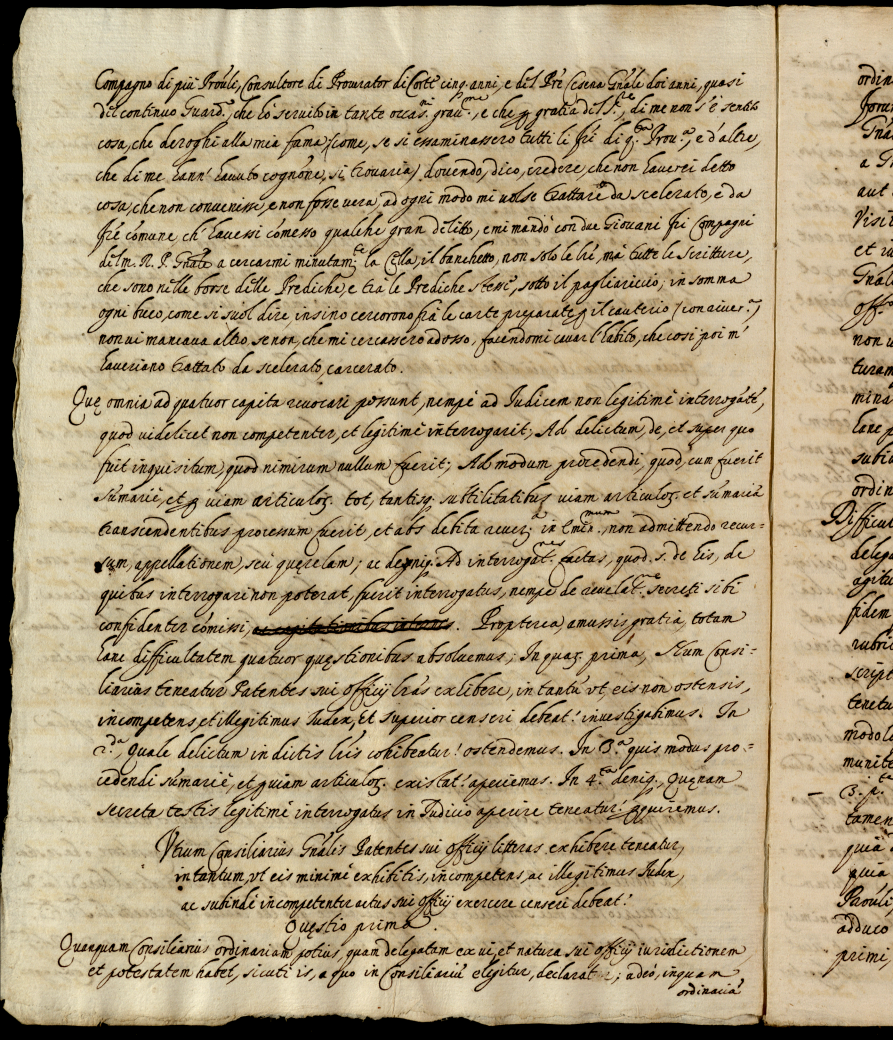 Compagno di più Prouli, Consultore di Procurator di Corte cinq. anni, e del Pre Cesena Gnale doi anni, quasi
del continuo Guard., che hò seruito in tante occas.ni grau.me, e che p gratia del S.re, di me non s'è sentito
cosa, che deroghi alla mia fama (come, se si essaminassero tutti li fri di q.sta Prou.a, e d'altre,
che di me hann' hauuto cognõne, si trouaria) douendo, dico, credere, che non hauerei detto
cosa, che non conuenisse, e non fosse uera, ad ogni modo mi uolse trattare da scelerato, e da
fre cõmune ch' hauessi cõmesso qualche gran delitto, e mi mandò con due Giouani fri Compagni
del m. R. P. Gnale a cercarmi minutam.te la Cella, il banchetto, non solo le lre, mà tutte le scritture,
che sono nelle borse delle Prediche, e trà le Prediche stesse, sotto il pagliariccio, in somma
ogni buco, come si suol dire, insino cercorono frà le carte preparate p il cauterio (con riuer.a)
non ui mancaua altro, se non, che mi cercassero adosso, facendomi cauar l'habito, che cosi poi m'
haueriano trattato da scelerato, carcerato.
Quę omnia ad quatuor capita reuocari possunt, nempè ad Iudicem non legitimè interrogãtẽ,
quod uidelicet non competenter, et legitimè interrogarit; Ad delictum, de, et super quo
fuit inquisitum, quod nimirum nullum fuerit; Ad modum procedendi, quod, cum fuerit
sũmariè, et p uiam articuloꝝ. tot, tantisq. subtilitatibus uiam articuloꝝ. et sũmariã
transcendentibus processum fuerit, et absq. debita reuer.a in Emin.mum, non admittendo recur=
sum, appellationem, seù querelam; ac deniq. Ad interrogat.nes factas, quod .s. de his, de
quibus interrogari non poterat, fuerit interrogatus, nempe de reuelat.ne secreti sibi
confidenter cõmissi, ac cogitationibus internis. Propterea, amussis gratia, totam
hanc difficultatem quatuor quęstionibus absoluemus; In quaꝝ. prima, Num Consi=
liarius teneatur Patentes sui officij lr̃as exhibere, in tantũ vt, eis non ostensis,
incompetens, et illegitimus Iudex, et Superior censeri debeat? inuestigabimus. In
2.da, Quale delictum in dictis lris cohibeatur? ostendemus. In 3.a quis modus pro=
cedendi sũmariè, et p uiam articuloꝝ. existat? aperiemus. In 4.ta deniq. Quęnam
secreta testis legitimè interrogatus in Iudicio aperire teneatur? exquiremus.
Vtrum Consiliarius Gnalis Patentes sui officij litteras exhibere teneatur,
in tantum, vt eis minimè exhibitis, incompetens, ac illegitimus Iudex,
ac subindè incompetenter actus sui officij exercere censeri debeat?
Quęstio prima.
Quanquam Consiliarius ordinariam potius, quam delegatam ex ui, et natura sui officij iurisdictionem,
et potestatem habet, sicuti is, a quo in Consiliariũ eligitur, declaratur; adeò, inquam
ordinariã
ordin
forum
Gnal
a G
aut
Visi
et
Gnal
off.
non
turam
mina
lere p
subi
ordin
Difficul
deleg
agitu
fidem
rubri
script
tenet
modo l
munit
3. p.
tamen
quia
quia
Prouli
adduco
primi,